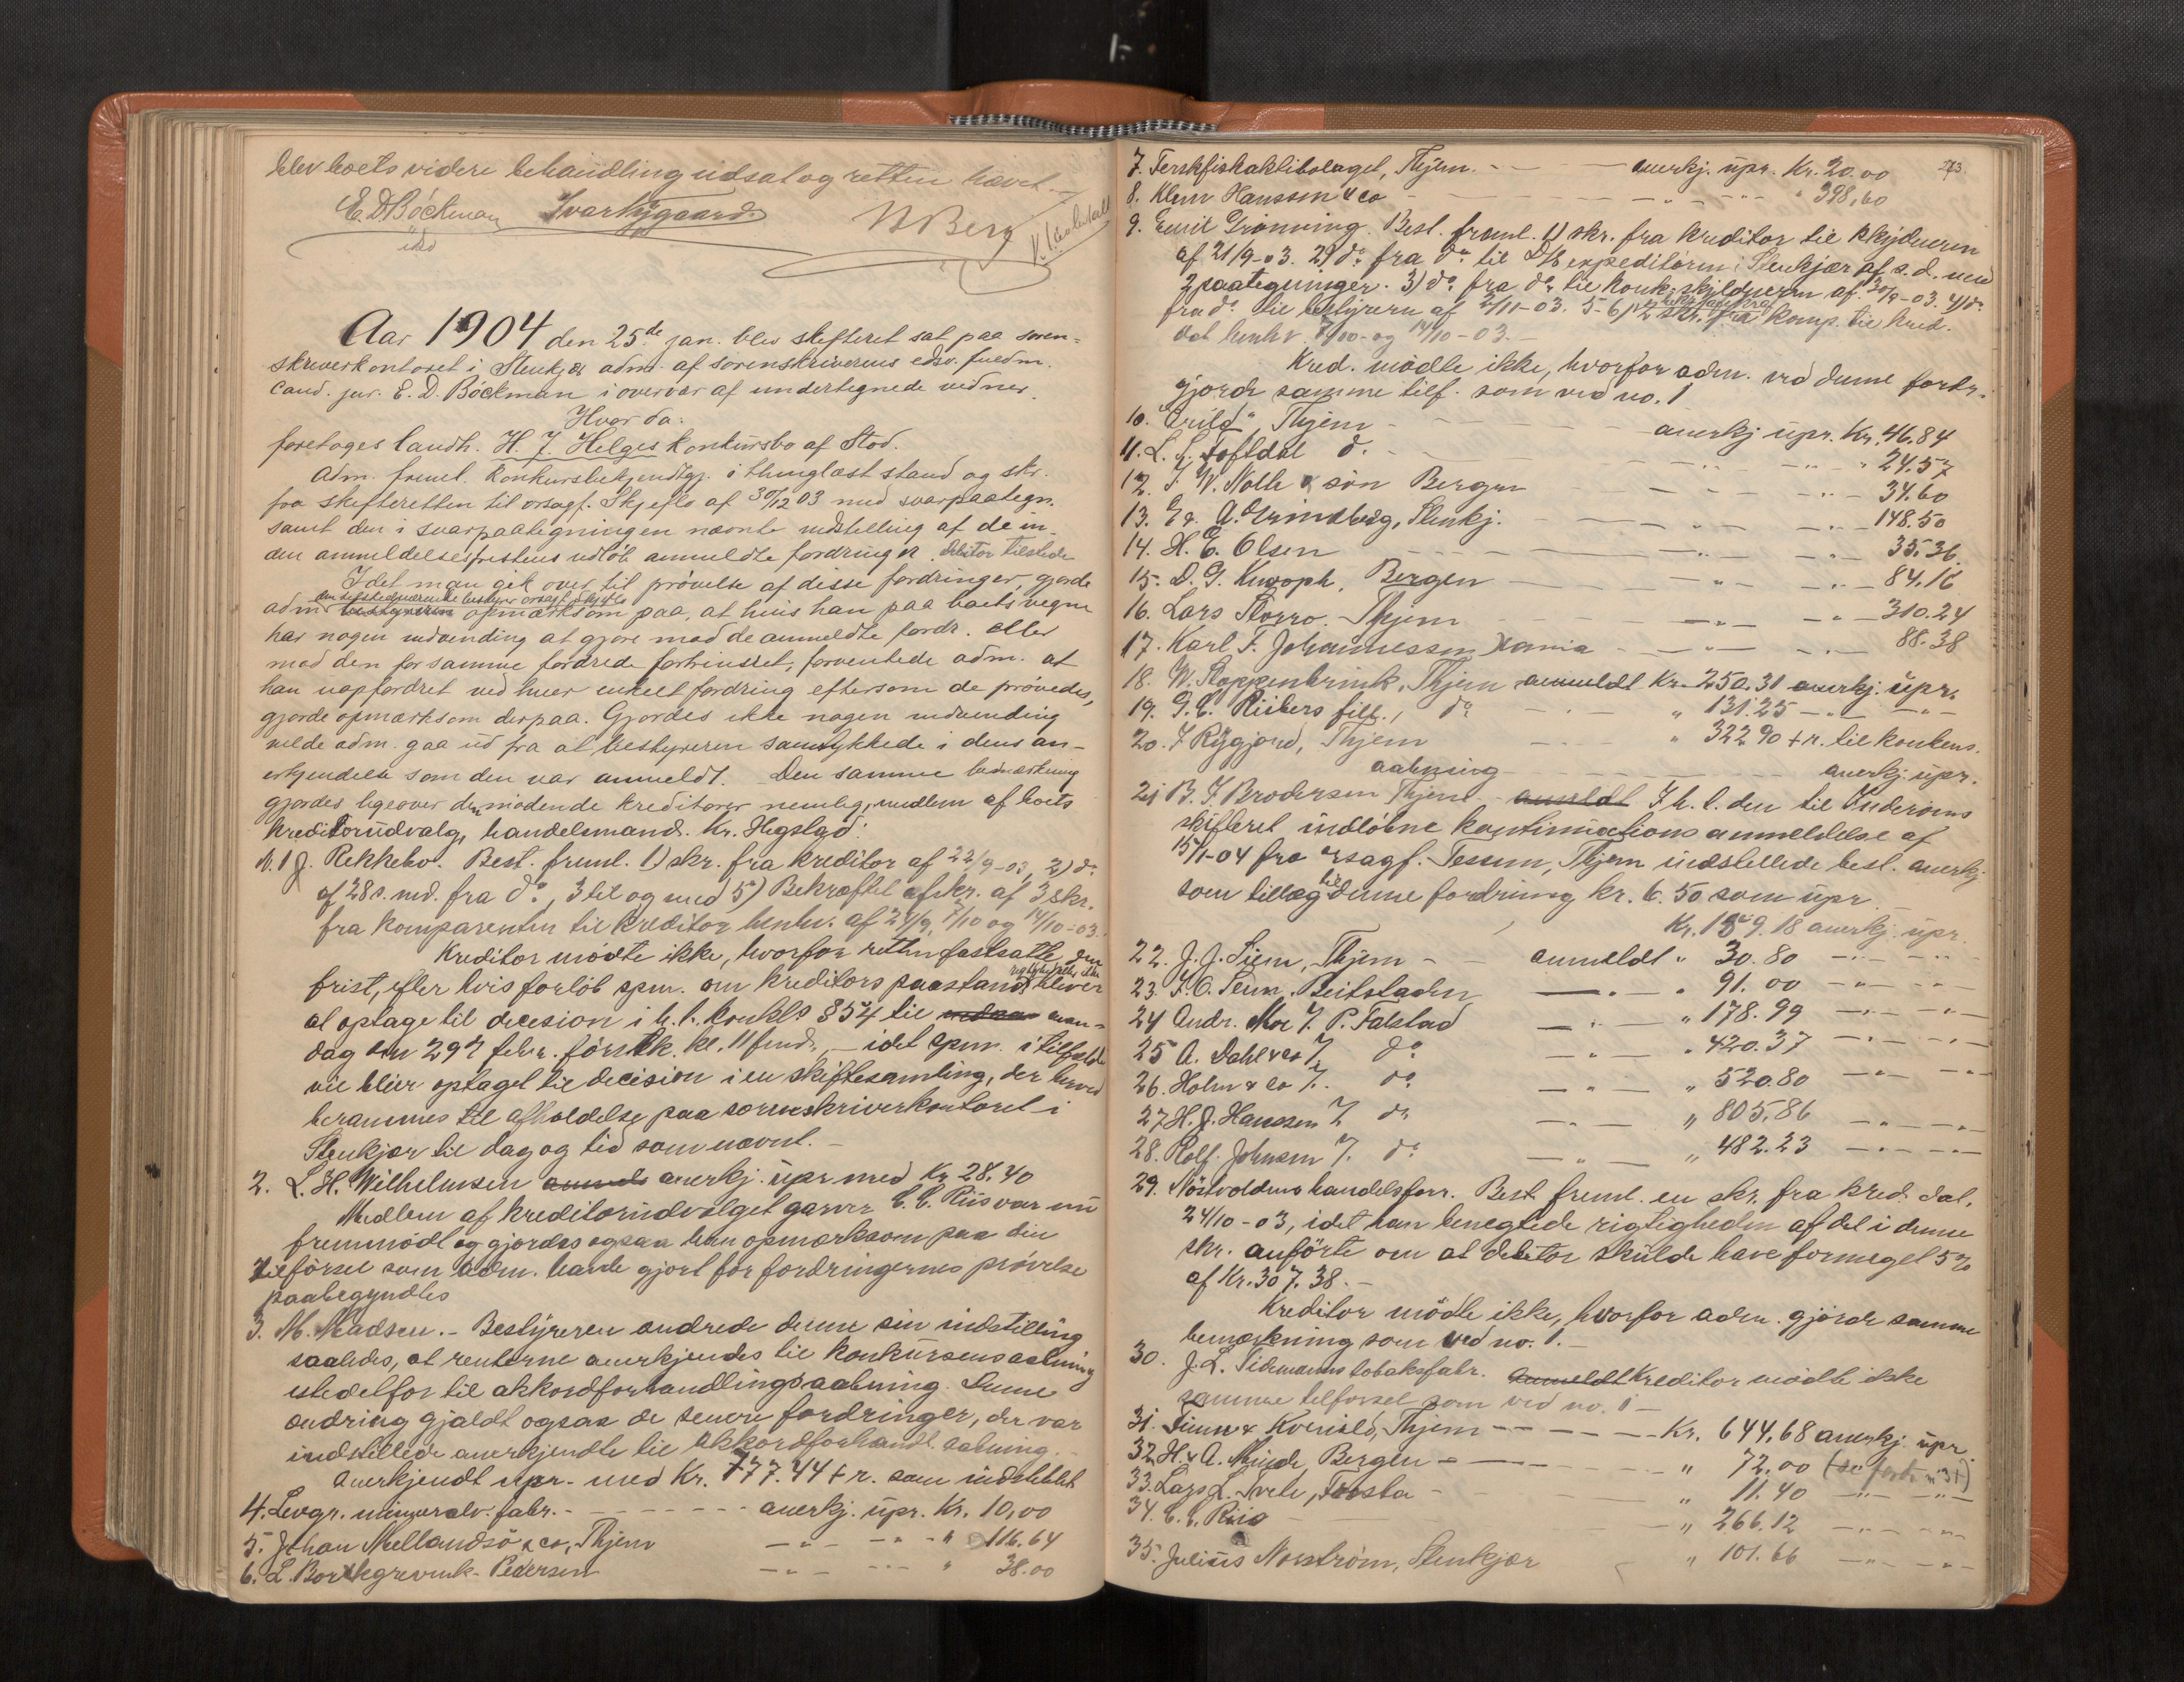 blev boets videre behandling udsat og retten hævet.
E. D Böckman Ivar Nygaard. N Berg
Aar 1904 den 25de jan. blev skifteret sat paa soren-
skriverkontoret i Stenkjær adm. af sorenskriverens edsv. fuldm.
cand. jur. E. D. Böckman i overvær af undertegnede vidner.
Hvor da:
foretoges landh. H. J. Helges konkursbo af Stod.
Adm. freml. konkursbekjendtgj. i thinglæst stand og skr.
fra skifteretten til orsagf. Skjeflo af 30/12 03 med svarpaategn.
samt den i svarpaategningen nævnte indstilling af de in-
den anmeldelsesfristens udløb anmeldte fordringer. Debitor tilstede
Idet man gik over til prøvelse af disse fordringer, gjorde
den tilstedeværende bestyrer orsagf. Skjeflo
adm. bestyreren opmærksom paa, at hvis han paa boets vegne
har nogen indvending at gjøre mod de anmeldte fordr. eller
mod den for samme fordrede fortrinsret, forventede adm. at
han uopfordret ved hver enkelt fordring eftersom de prøvedes,
gjorde opmærksom derpaa. Gjordes ikke nogen indvending
vilde adm. gaa ud fra at bestyreren samtykkede i dens an-
erkjendelse som den var anmeldt. Den samme bemærkning
gjordes ligeover den mødende kreditorer nemlig, medlem af boets
kreditorudvalg, handelsmand. Kr. Hegstad:
N. 1 J. Rekkebo. Best. freml. 1) skr. fra kreditor af 22/9-03, 2) do
af 28 s. md. fra do, 3 til og med 5) Bekræftet afskr. af 3 skr.
fra komparenten til kreditor henhv. af 24/9, 7/10 og 14/10-03.
Kreditor mødte ikke, hvorfor retten fastsatte den
frist, efter hvis forløb spm. om kreditors paastand bliver
at optage til decision i h. t. konkl. § 54 til man-
dag den 29 febr. førstk. kl. 11 fmd., - idet spm. i tilfælde
vil blive optaget til decision i en skiftesamling, der herved
berammes til afholdelse paa sorenskriverkontoret i
Stenkjær til dag og tid som nævnt.
2. L. H. Wilhelmsen anmeldt anerkj. upr med Kr. 28.40
Medlem af kreditorudvalget garver C. C. Riis var nu
fremmødt og gjordes ogsaa han opmærksom paa den
tilførsel som adm. havde gjort før fordringernes prøvelse
paabegyndtes
3. M. Madsen. - Bestyreren ændrede denne sin indstilling
saaledes, at renterne anerkjendes til konkursens aabning
istedetfor til akkordforhandlingsaabning. Denne
ændring gjaldt ogsaa de senere fordringer, der var
indstillede anerkjendte til akkordforhandl. aabning.
Anerkjendt upr. med Kr. 777.44 + r. som indstillet
4. Levgr. mineralv. fabr. - - - - anerkj. upr. Kr. 10,00
5. Johan Mellandsö & co, Thjem — „ — „ - „ 116.64
6. L. Borchgrevink-Pedersen — „ — - - - „ 38.00
7. Ferskfiskaktibolaget, Thjem. - - — anerkj. upr. Kr. 20.00
8. Klem Hanssen & co - — „ - - - „ 398,60
9. Emil Grønning. Best. freml. 1) skr. fra kreditor til skyldneren
af 21/9-03. 2) do fra do til D/S expeditøren i Stenkjær af s. d. med
2 paategninger. 3) do fra do til konk. skyldneren af 30/9-03. 4) do
fra do til bestyreren af 2/11-03. 5-6) 2 skr. fra komp. til kred.
dat henhv. 7/10- og 14/10-03.-
Kred. mødte ikke, hvorfor adm. ved denne fordr.
gjorde samme tilf. som ved no. 1
10. "Arild", Thjem - — anerkj upr. Kr. 46.84
11. L. L. Toftdal do. - - „ - - „ - „ 24.57
12. J. W. Nolte & søn Bergen — „ - — 34.60
13. Er. A. Grindberg, Stenkj. — „ — 148.50
14. H. E. Olsen — „ — 35.36.
15. D. G. Knooph, Bergen — „ — 84.16
16. Lars Storro. Thjem — „ — 310.24
17. Karl F. Johannessen Xania - — „ — 88.38
18. W. Stoppenbrink, Thjem anmeldt Kr. 250.31 anerkj. upr.
19. G. C. Riibers fill., do - „ 131.25 — „ - „ -
20. J Rygjord, Thjem - „ 322 90 + r. til konkens.
aabning - - anerkj. upr.
21 B. J. Brodersen Thjem - anmeldt I h. t. den til Inderøens
skifteret indløbne kontinuations anmeldelse af
15/1-04 fra orsagf. Tessem, Thjem indstillede best. anerkj.
som tillæg til denne fordring kr. 6.50 som upr
Kr. 159.18 anerkj. upr.
22. J. J. Siem, Thjem - - anmeldt „ 30.80 — „ — „ -
23. F. O. Senn. Beitstaden — „ — „ 91.00 — „ — „ -
24 Andr. Moe T. P. Falstad — „ — „ 178.99 — „ — „ -
25 A. Dahl & co T. do — „ — „ 420.37 — „ — „ -
26. Holm & Co T. do — „ — „ 520.80 — „ — „ -
27 H. J. Hanssen T. do — „ — „ 805.86 — „ — „ -
28. Rolf. Johnsen T. do — „ — „ 482.23 — „ — „ -
29. Nöstvoldens handelsforr. Best freml. en skr. fra kred. dat.
24/10-03, idet han benegtede rigtigheden af det i denne
skr. anførte om at debitor skulde have formeget 5%
af Kr. 307.38.-
Kreditor mødte ikke, hvorfor adm. gjorde samme
bemærkning som ved no. 1.-
30. J. L. Tidemanns tobaksfabr. Anmeldt Kreditor mødte ikke
samme tilførsel som ved no. 1 -
31. Finne & Kvenild, Thjem - - - - Kr. 644.68 anerkj. upr.
32. H. & A. Minde, Bergen - - — „ 72.00
33. Lars L. Tvete, Frosta - - „ 11.40 — „ — „ -
34. C. C. Riis — „ 266.12 — „ — „ -
35. Julius Norström, Stenkjær „ 101.66 — „ — „ -